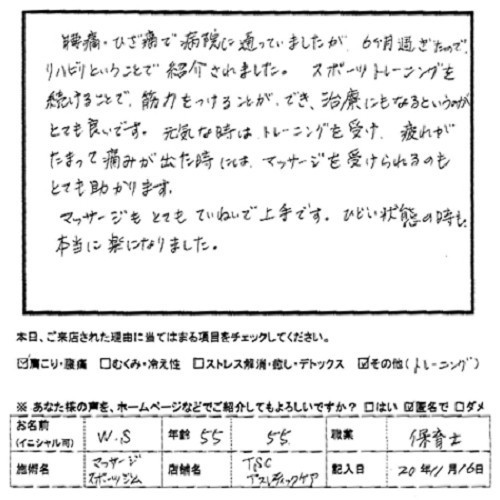 腰痛・ひざ痛で病院に通っていましたが、6ヶ月過ぎたので、
リハビリということで紹介されました。スポーツトレーニングを
続けることで、筋力をつけることができ、治療にもなるというのが
とても良いです。元気な時はトレーニングを受け、疲れが
たまって痛みが出た時には、マッサージを受けられるのも
とても助かります。
マッサージもとてもていねいで上手です。ひどい状態の時も、
本当に楽になりました。
本日、ご来店された理由に当てはまる項目をチェックしてください。
☑肩こり・腰痛 □むくみ・冷え性 □ストレス解消・癒し・デトックス ☑その他(トレーニング)
※ あなた様の声を、ホームページなどでご紹介してもよろしいですか？ □はい ☑匿名で □ダメ
お名前(イニシャル可) W.S 年齢 55 55 職業 保育士
施術名 マッサージ スポーツジム 店舗名 TSC 記入日 20年11月16日